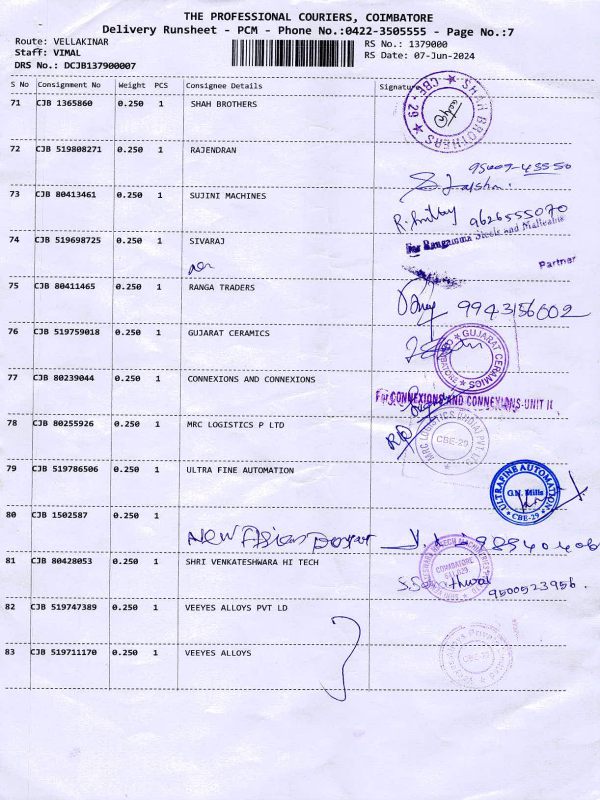 THE PROFESSIONAL COURIERS, COIMBATORE
Delivery Runsheet - PCM - Phone No.:0422-3505555 - Page No.:7
Route: VELLAKINAR
RS No.: 1379000
Staff: VIMAL
RS Date: 07-Jun-2024
DRS No.: DCJB137900007
S No Consignment No Weight PCS Consignee Details Signature
71 CJB 1365860 0.250 1 SHAH BROTHERS
SHAH BROTHERS CBE - 29
72 CJB 519808271 0.250 1 RAJENDRAN
73 CJB 80413461 0.250 1 SUJINI MACHINES
9626555070
For Rangamma Steels and Malleables
74 CJB 519698725 0.250 1 SIVARAJ
Partner
75 CJB 80411465 0.250 1 RANGA TRADERS
9943156002
76 CJB 519759018 0.250 1 GUJARAT CERAMICS
GUJARAT CERAMICS
77 CJB 80239044 0.250 1 CONNEXIONS AND CONNEXIONS
For CONNEXIONS AND CONNEXIONS-UNIT II
78 CJB 80255926 0.250 1 MRC LOGISTICS P LTD
MRC LOGISTICS (INDIA) PVT. LTD
CBE-29
79 CJB 519786506 0.250 1 ULTRA FINE AUTOMATION
ULTRAFINE AUTOMATION
G.N. Mills
CBE-29
80 CJB 1502587 0.250 1
New Asian
81 CJB 80428053 0.250 1 SHRI VENKATESHWARA HI TECH
COIMBATORE
9500523956
82 CJB 519747389 0.250 1 VEEYES ALLOYS PVT LD
83 CJB 519711170 0.250 1 VEEYES ALLOYS